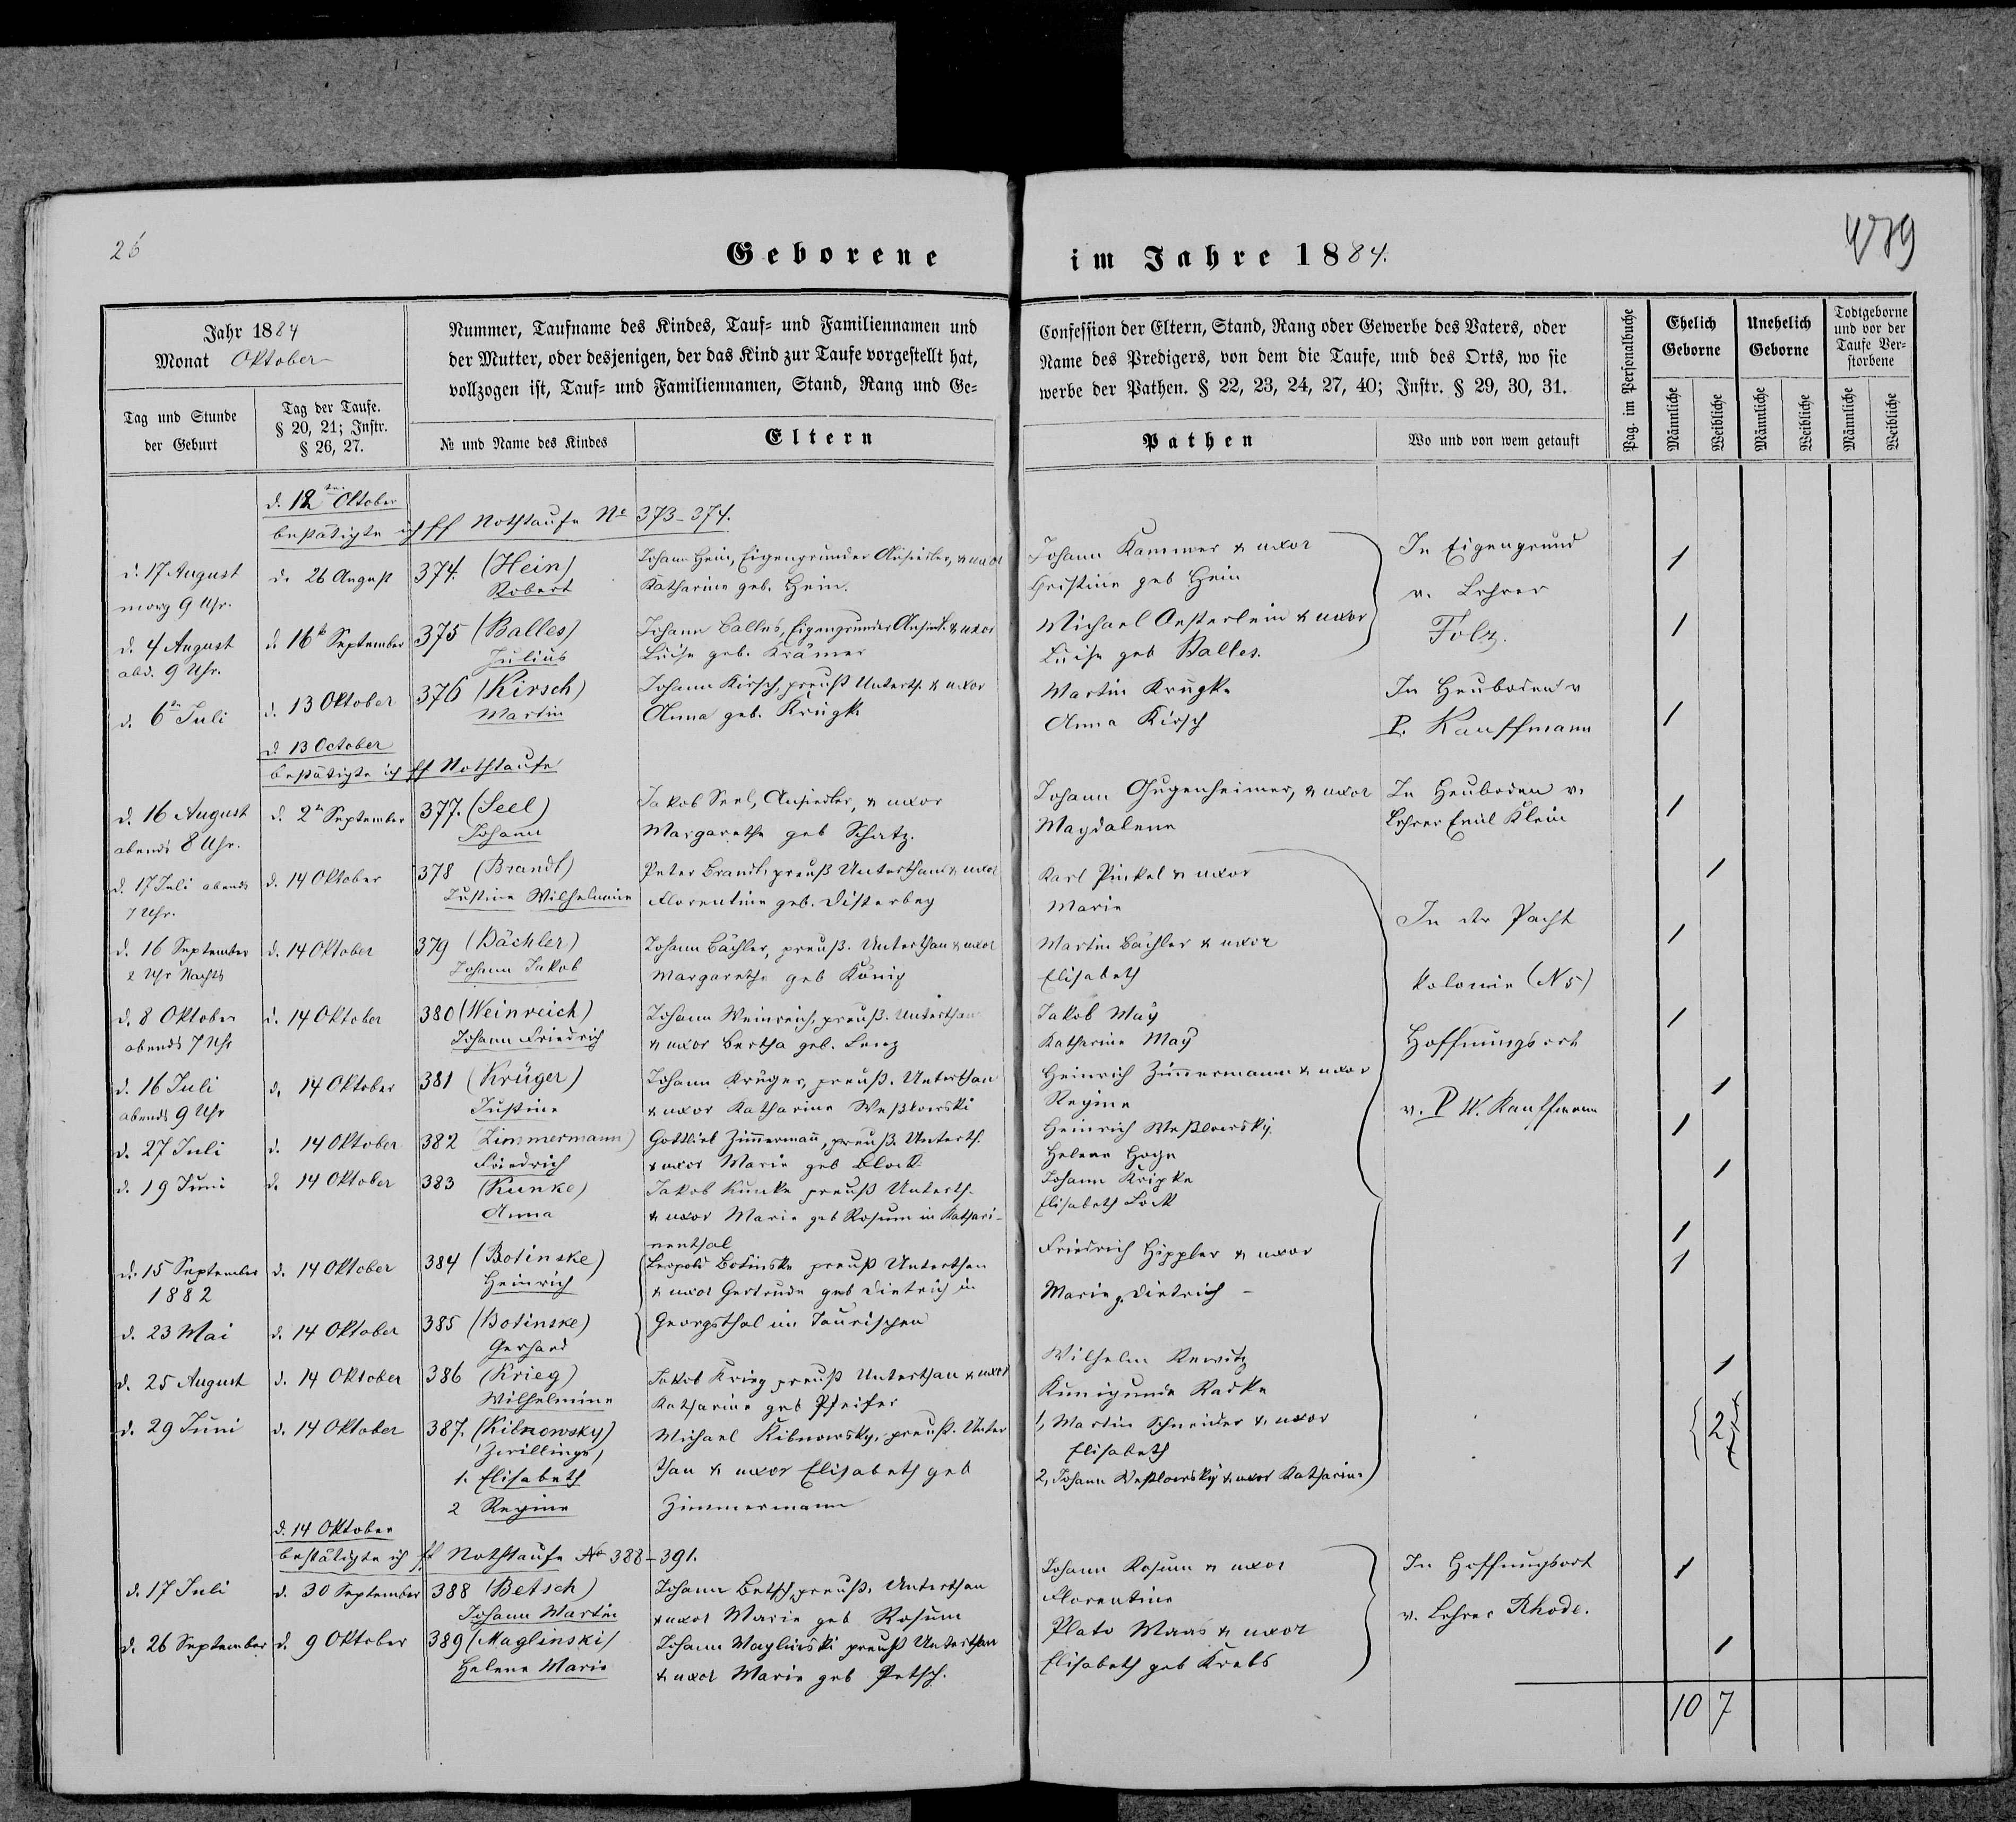 26
Geborene
im Jahre 1884.
479
Jahr 1884
Monat Oktober
Tag und Stunde
der Geburt
Tag der Taufe.
§ 20, 21; Instr.
§ 26, 27.
Nummer, Taufname des Kindes, Tauf- und Familiennamen und
der Mutter, oder desjenigen, der das Kind zur Taufe vorgestellt hat,
vollzogen ist, Tauf- und Familiennamen, Stand, Rang und Ge-
№ und Name des Kindes
Eltern
Confession der Eltern, Stand, Rang oder Gewerbe des Vaters, oder
Name des Predigers, von dem die Taufe, und des Orts, wo sie
werbe der Pathen. § 22, 23, 24, 27, 40; Instr. § 29, 30, 31.
Pathen
Wo und von wem getauft
Pag. im Personalbuche
Ehelich
Geborne
Unehelich
Geborne
Todtgeborne
und vor der
Taufe Ver-
storbene
Männliche
Weibliche
Männliche
Weibliche
Männliche
Weibliche
d. 12ten Oktober
bestätigte ich ff Nothtaufe No 373-374.
d. 17 August
morg 9 Uhr.
d. 26 August
374. (Hein)
Robert
Johann Hein, Eigengrunder Ansiedler, & uxor
Katharine geb. Hein.
Johann Kammer & uxor
Christine geb Hein
In Eigengrund
v. Lehrer
Folz.
1
d. 4 August
abd. 9 Uhr.
d. 16 September
375 (Balles)
Julius
Johann Balles, Eigengrunder Ansied. & uxor
Luise geb. Krämer
Michael Oesterlein & uxor
Luise geb Balles.
1
d. 6ten Juli
d. 13 Oktober
376 (Kirsch)
Martin
Johann Kirsch, preuß Unterth. & uxor
Anna geb. Krügke
Martin Krügke
Anna Kirsch
In Heuboden v
P. Kauffmann
1
d 13 October
bestätigte ich ff Nothtaufe
d. 16 August
abends 8 Uhr.
d. 2n September
377. (Seel)
Johann
Jakob Seel, Ansiedler, & uxor
Margarethe geb Schatz.
Johann Gugenheimer, & uxor
Magdalene
In Heuboden v.
Lehrer Emil Klein
1
d. 17 Juli abends
7 Uhr.
d. 14 Oktober
378 (Brandt)
Justine Wilhelmine
Peter Brandt, preuß Unterthan & uxor
Florentine geb. Disterbeg
Karl Pinkel & uxor
Marie
In der Pacht
kolonie (N 5)
Hoffnungsort
v. P W. Kauffmann
1
d. 16 September
2 Uhr Nachts
d. 14 Oktober
379 (Bächler)
Johann Jakob
Johann Bächler, preuß. Unterthan & uxor
Margarethe geb König
Martin Bächler & uxor
Elisabeth
1
d. 8 Oktober
abends 7 Uhr
d. 14 Oktober
380 (Weinreich)
Johann Friedrich
Johann Weinreich, preuß. Unterthan
& uxor Bertha geb. Lenz
Jakob May
Katharine May
1
d. 16 Juli
abends 9 Uhr
d. 14 Oktober
381 (Krüger)
Justine
Johann Krüger, preuß. Unterthan
& uxor Katharine Weßlowski
Heinrich Zimmermann & uxor
Regine
1
d. 27 Juli
d. 14 Oktober
382 Zimmermann)
Friedrich
Gottlieb Zimmermann, preuß. Unterth.
& uxor Marie geb Block
Heinrich Weßlowsky.
Helene Hoge
1
d. 19 Juni
d. 14 Oktober
383 (Kunke)
Anna
Jakob Kunke preuß Unterth.
& uxor Marie geb Rosum in Kathari-
nenthal
Johann Kripke
Elisabeth Lock
1
d. 15 September
1882
d. 14 Oktober
384 (Botinske)
Heinrich
Leopold Botinske preuß Unterthan
& uxor Gertrude geb Dietrich in
Georgsthal im Taurischen
Friedrich Hippler & uxor
Marie g. Dietrich -
1
d. 23 Mai
d. 14 Oktober
385 (Botinske)
Gerhard
1
d. 25 August
d. 14 Oktober
386 (Krieg)
Wilhelmine
Jakob Krieg preuß Unterthan & uxor
Katharine geb Pfeifer
Wilhelm Rewitz
Kunigunde Radke
1
d. 29 Juni
d. 14 Oktober
387. (Kibnowsky)
Zwillinge,
1. Elisabeth
2 Regine
Michael Kibnowsky, preuß. Unter
than & uxor Elisabeth geb
Zimmermann
1, Martin Schneider & uxor
Elisabeth
2, Johann Weßlowsky & uxor Katharine
2
d. 14 Oktober
bestätigte ich ff Nothtaufe No 388-391.
d. 17 Juli
d. 30 September
388 (Betsch)
Johann Martin
Johann Betsch, preuß. Unterthan
& uxor Marie geb Rosum
Johann Rosum & uxor
Florentine
In Hoffnungsort
v. Lehrer Rhode.
1
d. 26 September
d. 9 Oktober
389 (Maglinski)
Helene Marie
Johann Maglinski preuß Unterthan
& uxor Marie geb Petsch.
Plato Maas & uxor
Elisabeth geb Krebs
1
10 7